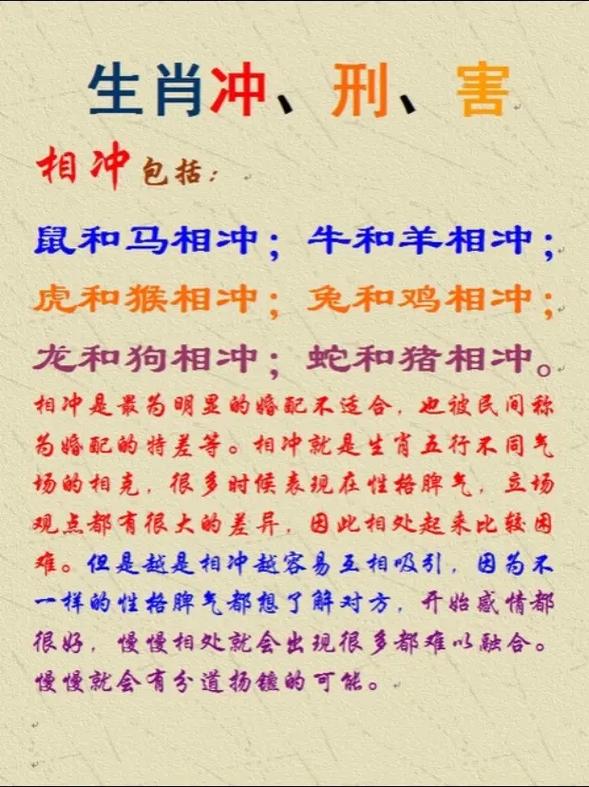 生肖冲、刑、害
相冲包括：
鼠和马相冲；牛和羊相冲；
虎和猴相冲；兔和鸡相冲；
龙和狗相冲；蛇和猪相冲。
相冲是最为明显的婚配不适合，也被民间称
为婚配的特差等。相冲就是生肖五行不同气
场的相克，很多时候表现在性格脾气，立场
观点都有很大的差异，因此相处起来比较困
难。但是越是相冲越容易互相吸引，因为不
一样的性格脾气都想了解对方，开始感情都
很好，慢慢相处就会出现很多都难以融合。
慢慢就会有分道扬镳的可能。